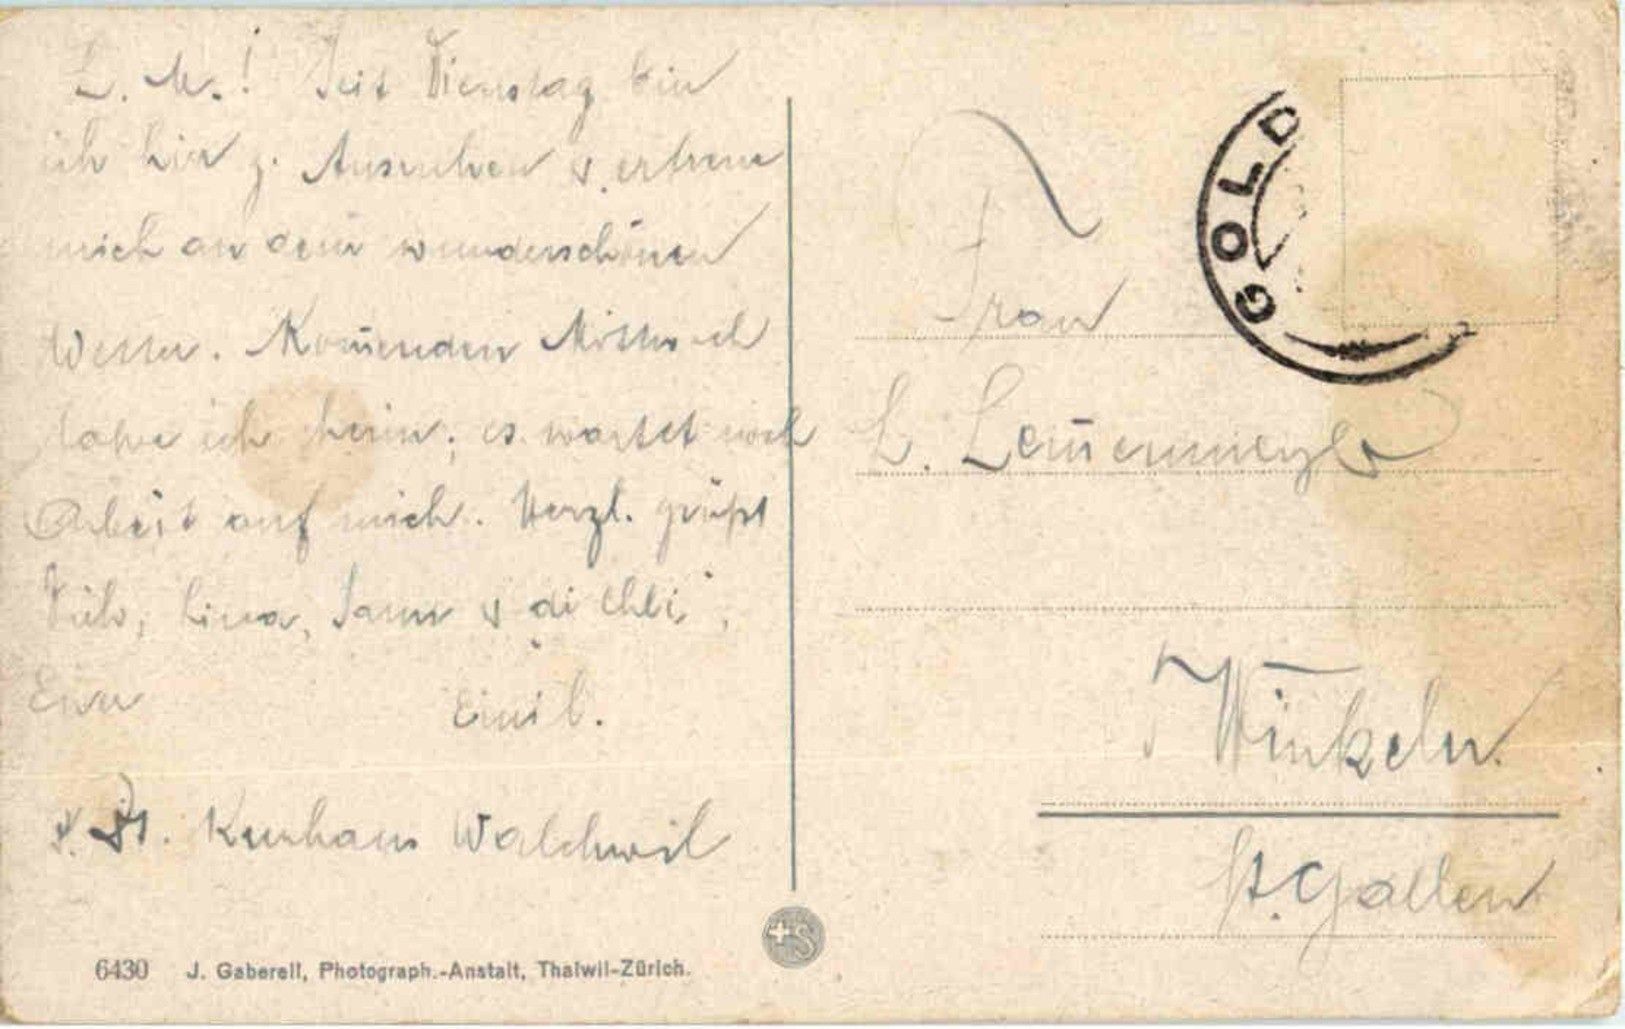 L. M.! Seit Dienstag bin
ich hier z. Ausruhen u. erfreue
mich an dem wunderschönen
Wetter. Kom̄enden Mittwoch
fahre ich heim; es wartet noch
Arbeit auf mich. Herzl. grüsst
Dich, Lina, Hans u di Chli,
Euer Emil.
z. Zt. Kurhaus Walchwil
6430 J. Gaberell, Photograph.-Anstalt, Thalwil-Zürich.
+S
GOLD
Frau
L.
Winkeln
St. Gallen